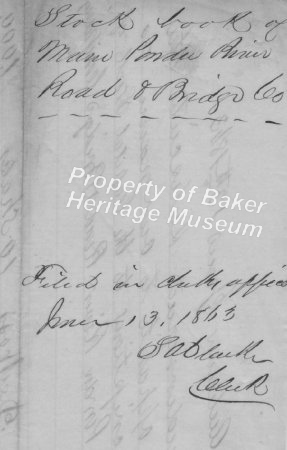 Stock book of
Main Powder River
Road & Bridge Co
Property of Baker
Heritage Museum
Filed in clerks office
June 13, 1863
Clerk